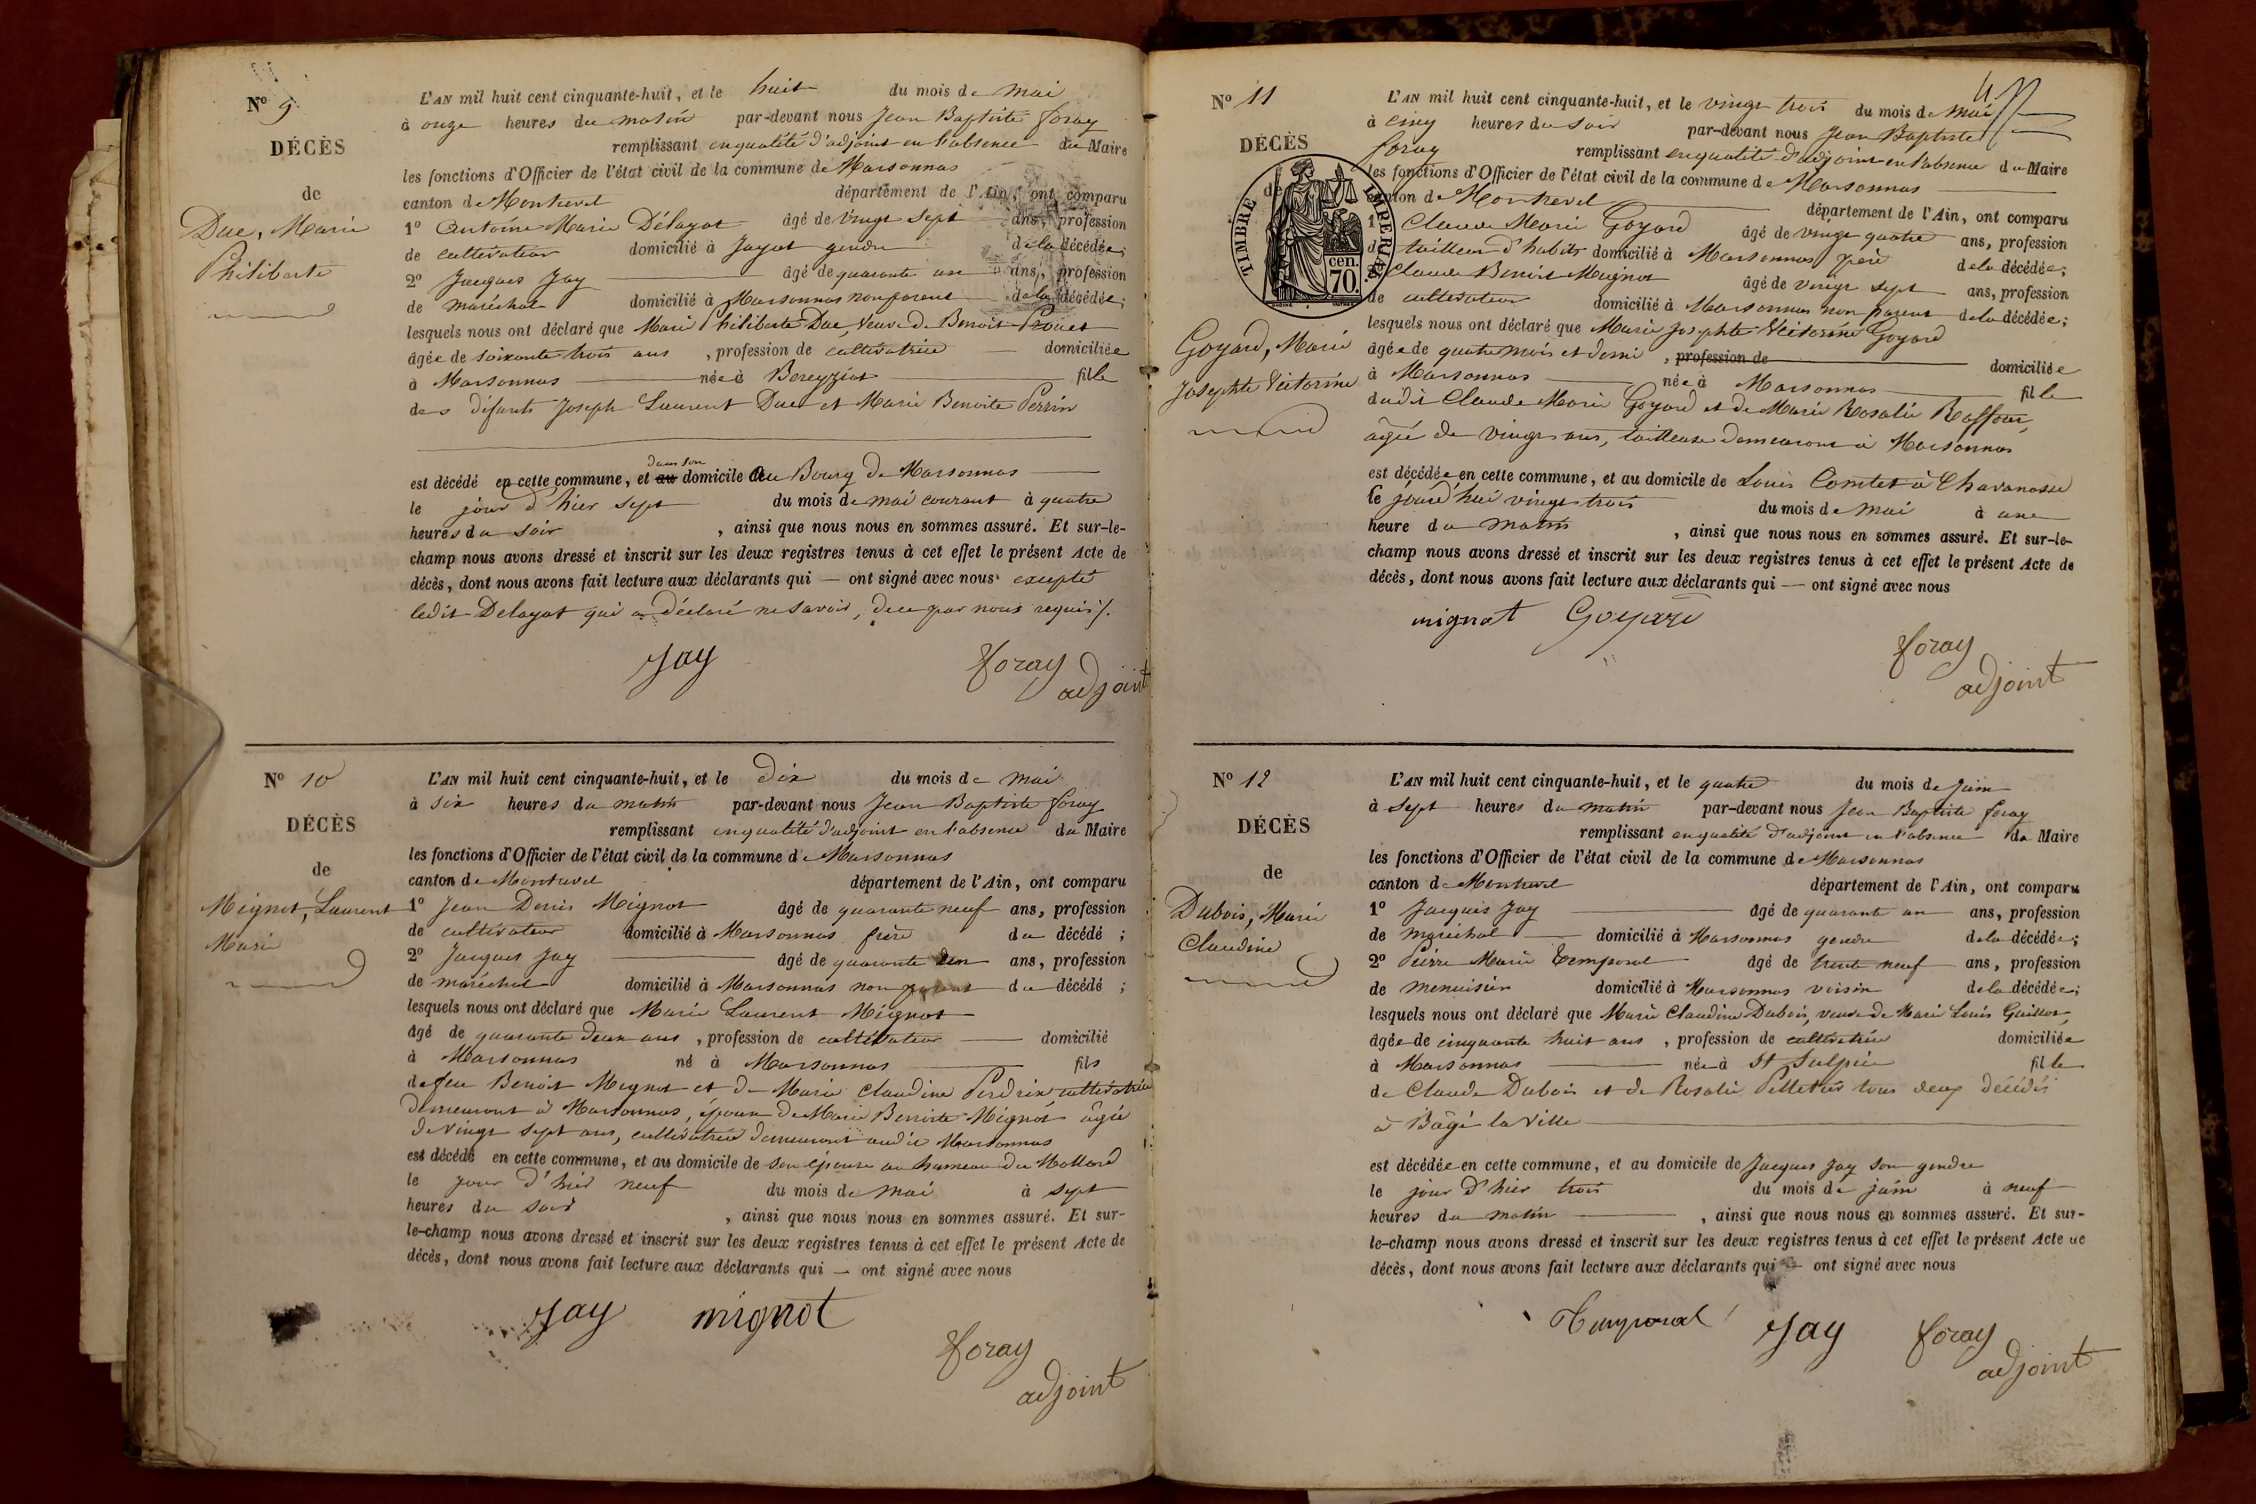 N° 9
DÉCÈS
de
Duc, Marie
Philiberte
L'AN mil huit cent cinquante-huit, et le huit du mois de mai
à onze heures du matin par-devant nous Jean Baptiste foray
remplissant en qualité d'adjoint en l'absence du Maire
les fonctions d'Officier de l'état civil de la commune de Marsonnas
canton de Montrevel département de l'Ain, ont comparu
1° Antoine Marie Délayat âgé de vingt sept ans, profession
de cultivateur domicilié à Jayat gendre de la décédée;
2° Jacques Jay âgé de quarante un ans, profession
de maréchal domicilié à Marsonnas non parent de la décédée;
lesquels nous ont déclaré que Marie Philiberte Duc, veuve de Benoit
âgée de soixante trois ans, profession de cultivatrice domiciliée
à Marsonnas née à Bereyziat fille
des défunts Joseph Laurent Duc et Marie Benoite Perrin
dans son
est décédé en cette commune, et au domicile Au Bourg de Marsonnas
le jour d'hier sept du mois de mai courant à quatre
heures du soir, ainsi que nous nous en sommes assuré. Et sur-le-
champ nous avons dressé et inscrit sur les deux registres tenus à cet effet le présent Acte de
décès, dont nous avons fait lecture aux déclarants qui — ont signé avec nous excepté
ledit Delayat qui a déclaré ne savoir, de ce par nous requis /.
Jay foray
adjoint
N° 10
DÉCÈS
de
Mignot, Laurent
Marie
L'AN mil huit cent cinquante-huit, et le dix du mois de mai
à six heures du matin par-devant nous Jean Baptiste foray
remplissant en qualité d'adjoint en l'absence du Maire
les fonctions d'Officier de l'état civil de la commune de Marsonnas
canton de Montrevel département de l'Ain, ont comparu
1° Jean Denis Mignot âgé de quarante neuf ans, profession
de cultivateur domicilié à Marsonnas frère du décédé;
2° Jacques Jay âgé de quarante un ans, profession
de maréchal domicilié à Marsonnas non parent du décédé;
lesquels nous ont déclaré que Marie Laurent Mignot
âgé de quarante deux ans, profession de cultivateur domicilié
à Marsonnas né à Marsonnas fils
de feu Benoit Mignot et de Marie Claudine Perdrix cultivatrice
demeurant à Marsonnas, époux de Marie Benoite Mignot âgée
de vingt sept ans, cultivatrice demeurant audit Marsonnas
est décédé en cette commune, et au domicile de son épouse au hameau du Mollard
le jour d'hier neuf du mois de mai à sept
heures du soir, ainsi que nous nous en sommes assuré. Et sur-
le-champ nous avons dressé et inscrit sur les deux registres tenus à cet effet le présent Acte de
décès, dont nous avons fait lecture aux déclarants qui — ont signé avec nous
Jay mignot
foray
adjoint
N° 11
DÉCÈS
de
TIMBRE IMPÉRIAL
cen.
70.
Goyard, Marie
Josephte Victorine
L'AN mil huit cent cinquante-huit, et le vingt trois du mois de mai
à cinq heures du soir par-devant nous Jean Baptiste
foray remplissant en qualité d'adjoint en l'absence du Maire
les fonctions d'Officier de l'état civil de la commune de Marsonnas
canton de Montrevel département de l'Ain, ont comparu
1° Claude Marie Goyard âgé de vingt quatre ans, profession
de tailleur d'habits domicilié à Marsonnas père de la décédée;
2° Claude Benoit Mignot âgé de vingt sept ans, profession
de cultivateur domicilié à Marsonnas non parent de la décédée;
lesquels nous ont déclaré que Marie Josephte Victorine Goyard
âgée de quatre mois et demi, profession de domiciliée
à Marsonnas née à Marsonnas fille
dudit Claude Marie Goyard et de Marie Rosalie
âgée de vingt ans, tailleuse demeurant à Marsonnas
est décédée en cette commune, et au domicile de Louis Comtet à Chavanosse
le jourd'hui vingt trois du mois de mai à une
heure du matin, ainsi que nous nous en sommes assuré. Et sur-le-
champ nous avons dressé et inscrit sur les deux registres tenus à cet effet le présent Acte de
décès, dont nous avons fait lecture aux déclarants qui — ont signé avec nous
mignot Goyard
foray
adjoint
N° 12
DÉCÈS
de
Dubois, Marie
Claudine
L'AN mil huit cent cinquante-huit, et le quatre du mois de juin
à sept heures du matin par-devant nous Jean Baptiste foray
remplissant en qualité d'adjoint en l'absence du Maire
les fonctions d'Officier de l'état civil de la commune de Marsonnas
canton de Montrevel département de l'Ain, ont comparu
1° Jacques Jay âgé de quarante un ans, profession
de maréchal domicilié à Marsonnas gendre de la décédée;
2° Pierre Marie Temporal âgé de trente neuf ans, profession
de menuisier domicilié à Marsonnas voisin de la décédée;
lesquels nous ont déclaré que Marie Claudine Dubois, veuve de Marie Louis Guillot,
âgée de cinquante huit ans, profession de cultivatrice domiciliée
à Marsonnas née à St Sulpice fille
de Claude Dubois et de Rosalie Pelletier tous deux décédés
à Bâgé la Ville
est décédée en cette commune, et au domicile de Jacques Jay son gendre
le jour d'hier trois du mois de juin à neuf
heures du matin, ainsi que nous nous en sommes assuré. Et sur-
le-champ nous avons dressé et inscrit sur les deux registres tenus à cet effet le présent Acte de
décès, dont nous avons fait lecture aux déclarants qui — ont signé avec nous
Temporal Jay foray
adjoint